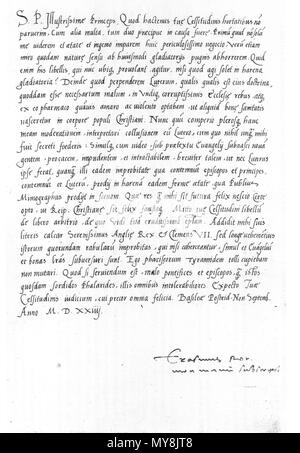 S. P. Illustrissime Princeps. Quod hactenus tuę Celsitudinis hortatibus nō
paruerim, Cum alia multa, tum duo precipue in causa fuere. Primū quod nō solū
me uiderem et ætate et ingenio imparem huic periculosissimo negocio Verū etiam
miro quodam naturę sensu ab huiusmodi gladiatorijs pugnis abhorrerem. Quid
enim hijs libellis qui nūc ubiq; prouolant, agitur, nisi quod agi solet in harena
gladiatoria? Deinde quod perpenderem Luterum, qualis qualis est eius doctrina,
quoddam esse necessarium malum, in uniuersum corruptissimis Ecclesię rebus atq;
ex eo pharmaco quāuis amaro ac uiolento optabam ut aliquid bonę sanitatis
nasceretur in corpore populi Christiani. Nunc qui comperio plerosq; hanc
meam moderationem interpretari collusionem cū Lutero, cum quo nihil unq̄ mihi
fuit secreti fœderis. Simulq; cum uideo sub pretextu Euangelij subnasci nouā
gentem procacem, impudentem et intractabilem breuiter talem ut nec Luterus
ipse ferat, quanq̄ illi eadem improbitate qua contemnūt episcopos et principes,
contemnūt et Luterū, prodij in harenā eadem ferme ætate qua Publius
Mimographus prodijt in scenam. Quæ res q̄ mihi sit futura felix nescio. Certe
opto ut Reip. Christianę sit felix faustaq;. Mitto tuę Celsitudini libellū
de libero arbitrio, de quo uidi tuā eruditissimā epłam. Addidit mihi suis
literis calcar Serenissimus Anglię Rex et Clemens VII. Sed longe uehemētius
istorum quorundam rabularū improbitas, qui nisi coherceantur, simul et Euāgeliū
et bonas lrās subuersuri sunt. Ego pharisęorum tyrannidem tolli cupiebam
non mutari. Quod si seruiendum est malo pontifices et episcopos, q̄ istos
quosdam sordidos Phalarides, illis omnibus intolerabiliores. Expecto Tuę
Celsitudinis iudicium, cui precor omnia felicia. Basileę Postrid. Non. Septemb.
Anno M. D. XXIIIJ.
Erasmus Rot.
mea manu subscripsi